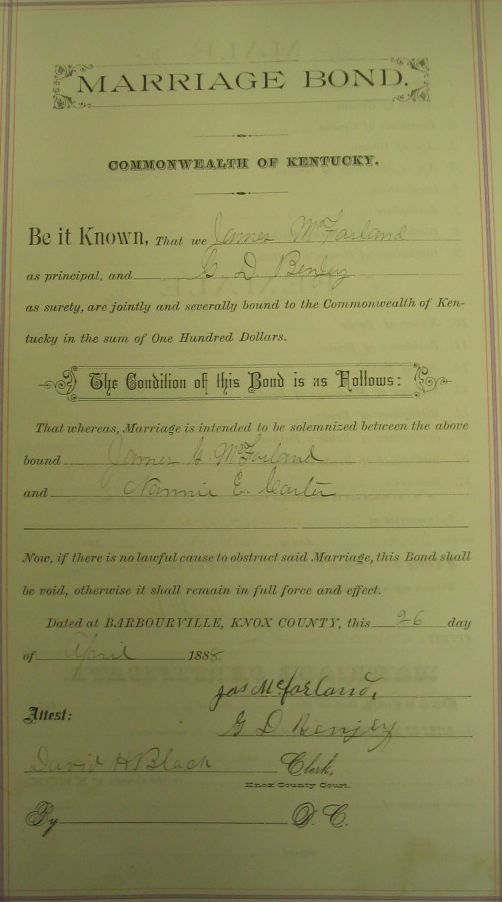 MARRIAGE BOND.
COMMONWEALTH OF KENTUCKY.
Be it Known, That we James McFarland
as principal, and G. D. 
as surety, are jointly and severally bound to the Commonwealth of Ken-
tucky in the sum of One Hundred Dollars.
The Condition of this Bond is as Follows:
That whereas, Marriage is intended to be solemnized between the above
bound James G. McFarland
and Nannie E. Carter
Now, if there is no lawful cause to obstruct said Marriage, this Bond shall
be void, otherwise it shall remain in full force and effect.
Dated at BARBOURVILLE, KNOX COUNTY, this 26 day
of April 1888
Jas McFarland,
Attest:
G D
David H Black Clerk,
Knox County Court.
By D. C.